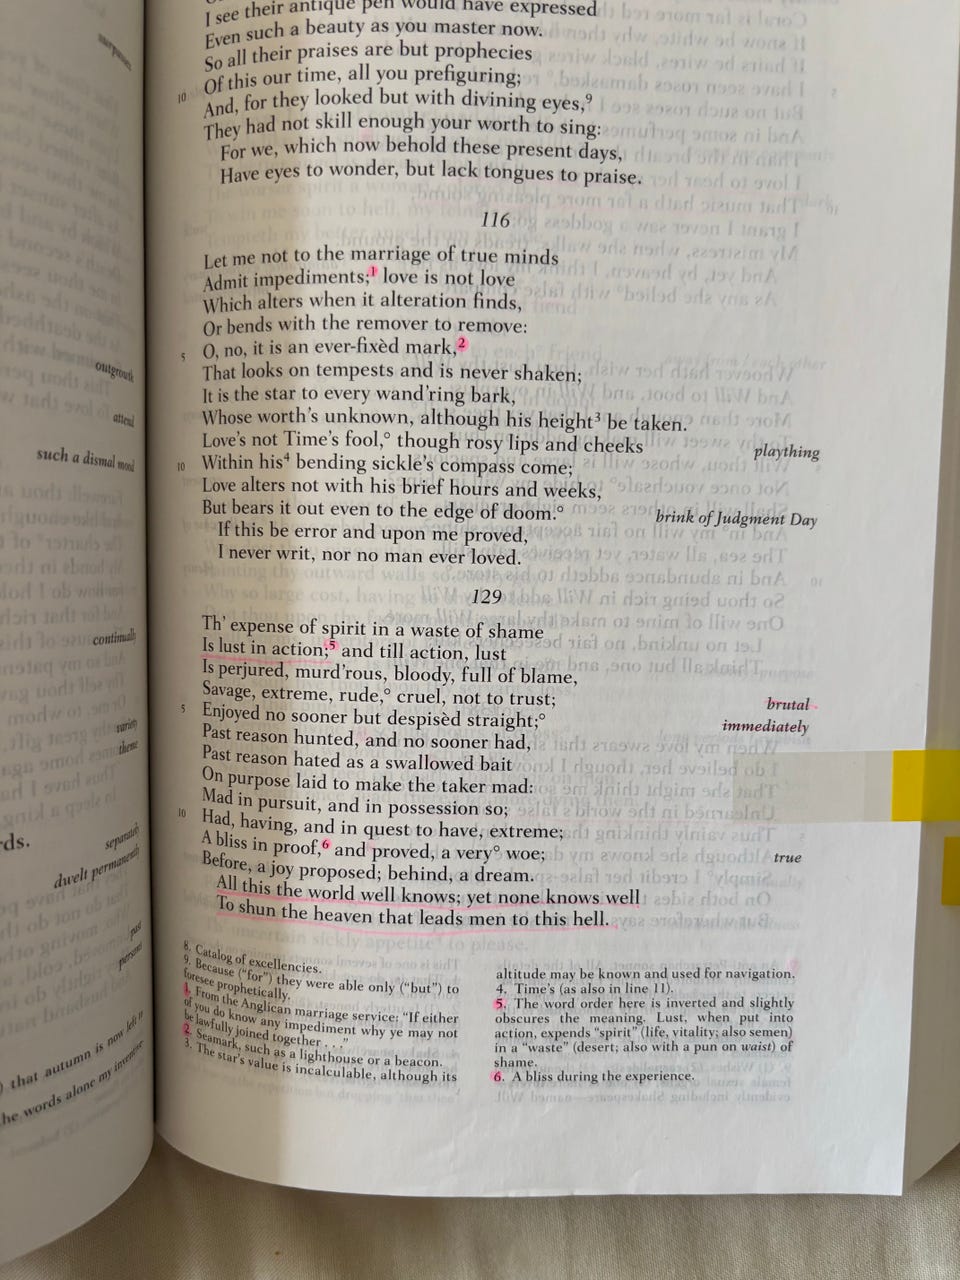 I see their antique pen would have expressed
Even such a beauty as you master now.
So all their praises are but prophecies
Of this our time, all you prefiguring;
10 And, for they looked but with divining eyes,9
They had not skill enough your worth to sing:
For we, which now behold these present days,
Have eyes to wonder, but lack tongues to praise.
116
Let me not to the marriage of true minds
Admit impediments;1 love is not love
Which alters when it alteration finds,
Or bends with the remover to remove:
5 O, no, it is an ever-fixèd mark,2
That looks on tempests and is never shaken;
It is the star to every wand'ring bark,
Whose worth's unknown, although his height3 be taken.
Love's not Time's fool,° though rosy lips and cheeks plaything
10 Within his4 bending sickle's compass come;
Love alters not with his brief hours and weeks,
But bears it out even to the edge of doom.° brink of Judgment Day
If this be error and upon me proved,
I never writ, nor no man ever loved.
129
Th' expense of spirit in a waste of shame
Is lust in action;5 and till action, lust
Is perjured, murd'rous, bloody, full of blame,
Savage, extreme, rude,° cruel, not to trust; brutal
5 Enjoyed no sooner but despisèd straight;° immediately
Past reason hunted, and no sooner had,
Past reason hated as a swallowed bait
On purpose laid to make the taker mad:
Mad in pursuit, and in possession so;
10 Had, having, and in quest to have, extreme;
A bliss in proof,6 and proved, a very° woe; true
Before, a joy proposed; behind, a dream.
All this the world well knows; yet none knows well
To shun the heaven that leads men to this hell.
8. Catalog of excellencies.
9. Because ("for") they were able only ("but") to
foresee prophetically.
1. From the Anglican marriage service: "If either
of you do know any impediment why ye may not
be lawfully joined together . . ."
2. Seamark, such as a lighthouse or a beacon.
3. The star's value is incalculable, although its
altitude may be known and used for navigation.
4. Time's (as also in line 11).
5. The word order here is inverted and slightly
obscures the meaning. Lust, when put into
action, expends "spirit" (life, vitality; also semen)
in a "waste" (desert; also with a pun on waist) of
shame.
6. A bliss during the experience.
outgrowth
attend
such a dismal mood
continually
variety
theme
rds.
separately
dwelt permanently
past
persons
) that autumn is now left
he words alone my inventive